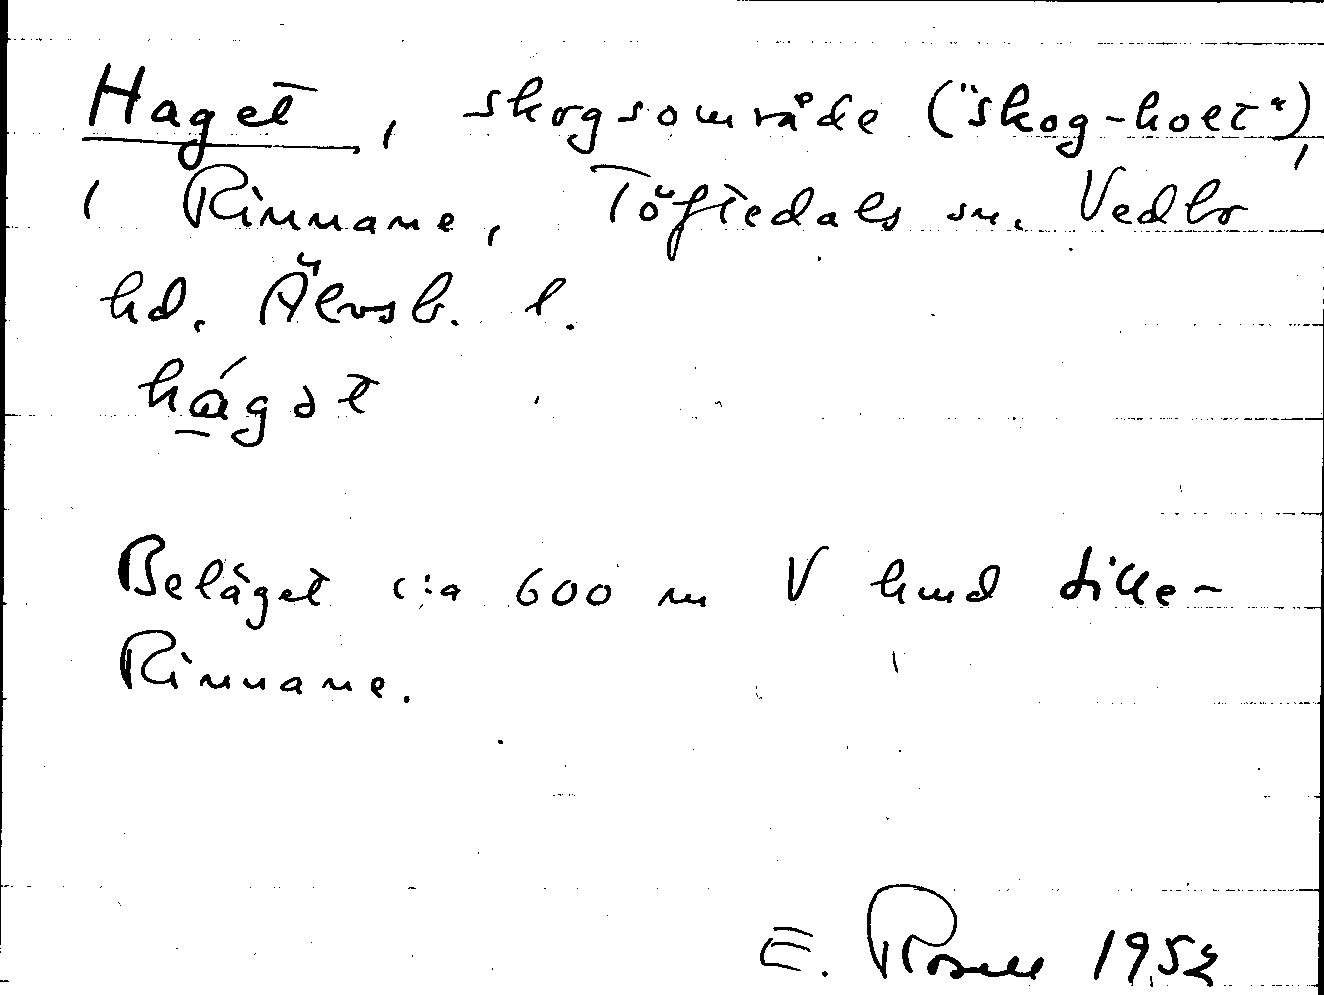 Haget, skogsområde ("skog-holt"),
i Rinnane, Töftedals sn. Vedbo
hd. Älvsb. l.
hágət
Beläget c:a 600 m V Lund Lille-
Rinnane.
E. Rosell 1952